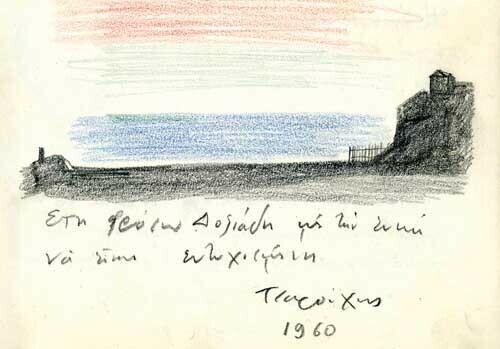 Στη Φρόσω Δοξιάδη μέ τήν εὐχή
νά εἶναι εὐτυχισμένη
Τσαρούχης
1960